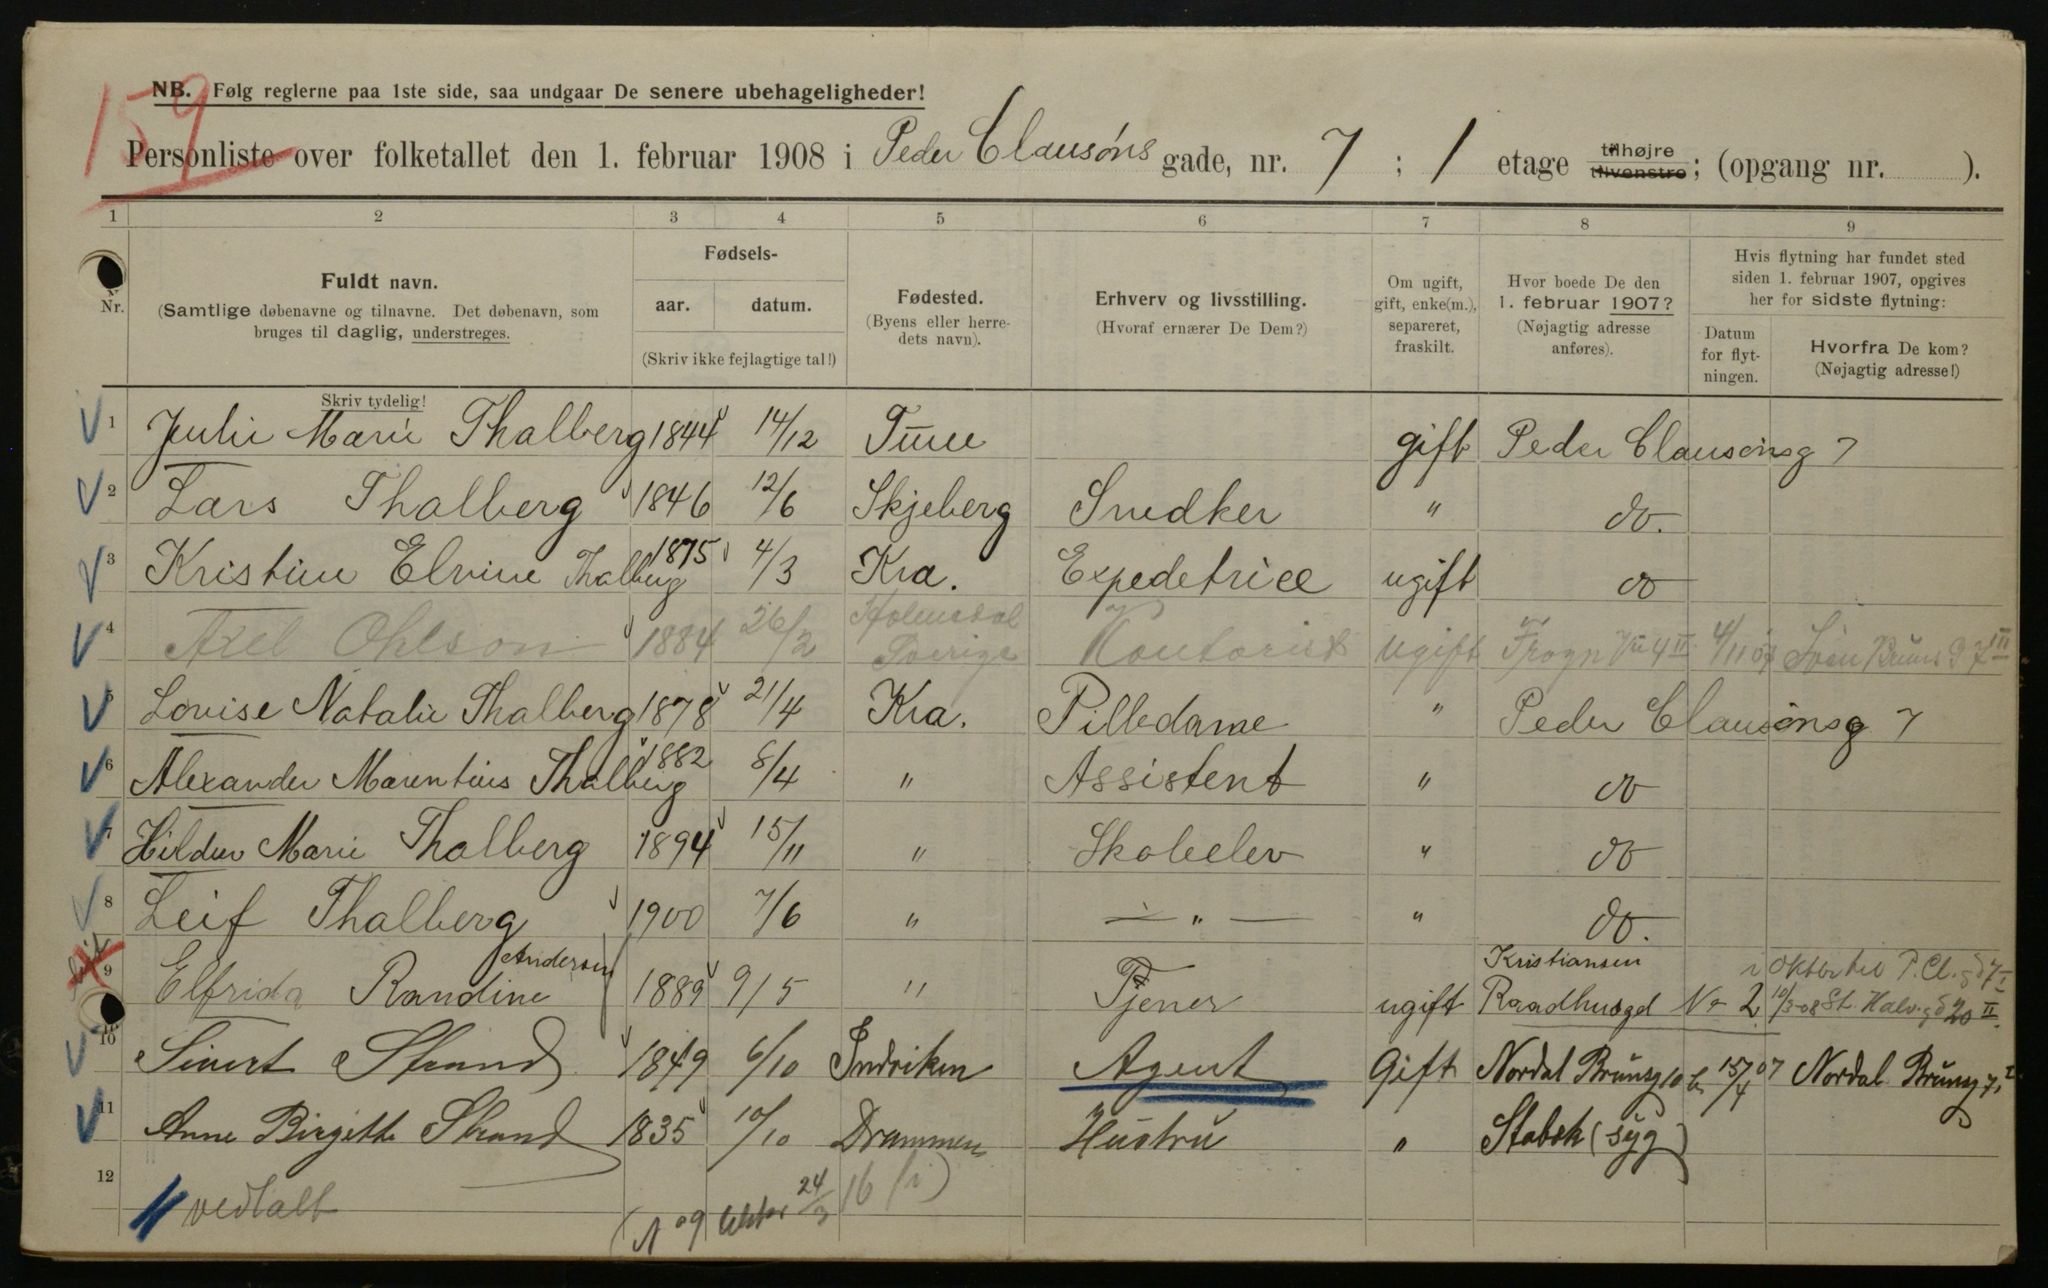 159
NB. Følg reglerne paa 1ste side, saa undgaar De senere ubehageligheder!
Personliste over folketallet den 1. februar 1908 i Peder Clausøns gade, nr. 7 ; 1 etage tilhøjre tilvenstre; (opgang nr. ).
1 2 3 4 5 6 7 8 9
Nr.
Fuldt navn.
(Samtlige døbenavne og tilnavne. Det døbenavn, som
bruges til daglig, understreges.
Skriv tydelig!
Fødsels-
aar. datum.
(Skriv ikke fejlagtige tal!)
Fødested.
(Byens eller herre-
dets navn).
Erhverv og livsstilling.
(Hvoraf ernærer De Dem?)
Om ugift,
gift, enke(m.),
separeret,
fraskilt.
Hvor boede De den
1. februar 1907?
(Nøjagtig adresse
anføres).
Hvis flytning har fundet sted
siden 1. februar 1907, opgives
her for sidste flytning:
Datum
for flyt-
ningen.
Hvorfra De kom?
(Nøjagtig adresse!)
1 Julie Marie Thalberg 1844 14/12 Tune gift Peder Clausønsg 7
2 Lars Thalberg 1846 12/6 Skjeberg Snedker " do.
3 Kristine Elvine Thalberg 1875 4/3 Kra. Expedetrice ugift do
4 Axel Ohlson 1884 26/2 Sverige Kontorist ugift Frogn 4 II 4/11 07 Bruns g 7 III
5 Lovise Natalie Thalberg 1878 21/4 Kra. Pilledame " Peder Clausønsg 7
6 Alexander Marentius Thalberg 1882 8/4 " Assistent " do
7 Hildur Marie Thalberg 1894 15/11 " Skoleelev " do
8 Leif Thalberg 1900 7/6 " — " — " do.
9 Elfrida Randine Andersen 1889 9/5 " Tjener ugift Kristiansen Raadhusgd No 2 i Oktbr til P. Cl. gd 7 I
10/3-08 St. Halv. gd 20 II.
10 Sivert Strand 1849 6/10 Indviken Agent Gift Nordal Brunsg 10 b 15/4 07 Nordal Brunsg 7, I
11 Anne Birgitte Strand 1835 10/10 Drammen Hustru " Stabæk (syg)
12
vedtalt
09 24/3 16